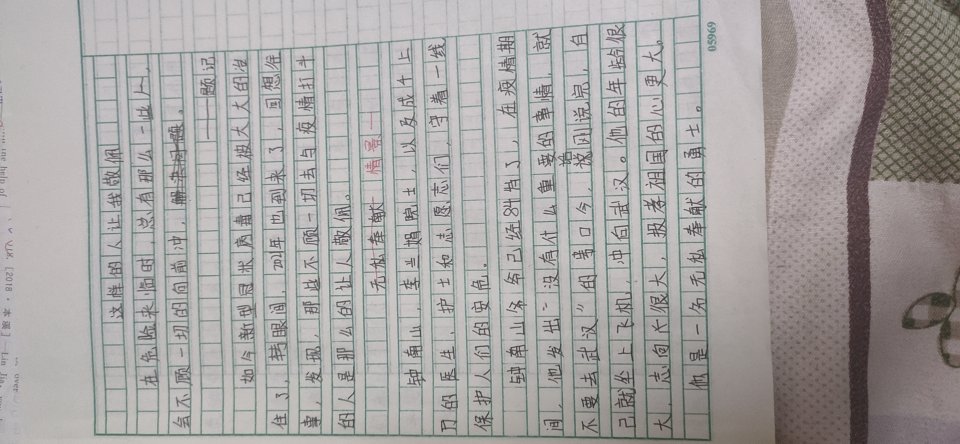 这样的人让我敬佩
在危险来临时，总有那么一些人，
会不顾一切的向前冲，解决问题。
——题记
如今新型冠状病毒已经被大大的控
住了，转眼间，2021年也到来了，回想往
事，发现，那些不顾一切去与疫情打斗
的人是那么的让人敬佩。
无私奉献 情景一
钟南山，李兰娟院士，以及成千上
万的医生，护士和志愿志们，守着一线
保护人们的安危。
钟南山爷爷已经84岁了，在疫情期
间，他发出“没有什么重要的事情，就
不要去武汉”的号口令，说完，自
己就坐上飞机，冲向武汉。他的年龄很
大，志向亦很大，报孝祖国的心更大。
他是一名无私奉献的勇士。
05969